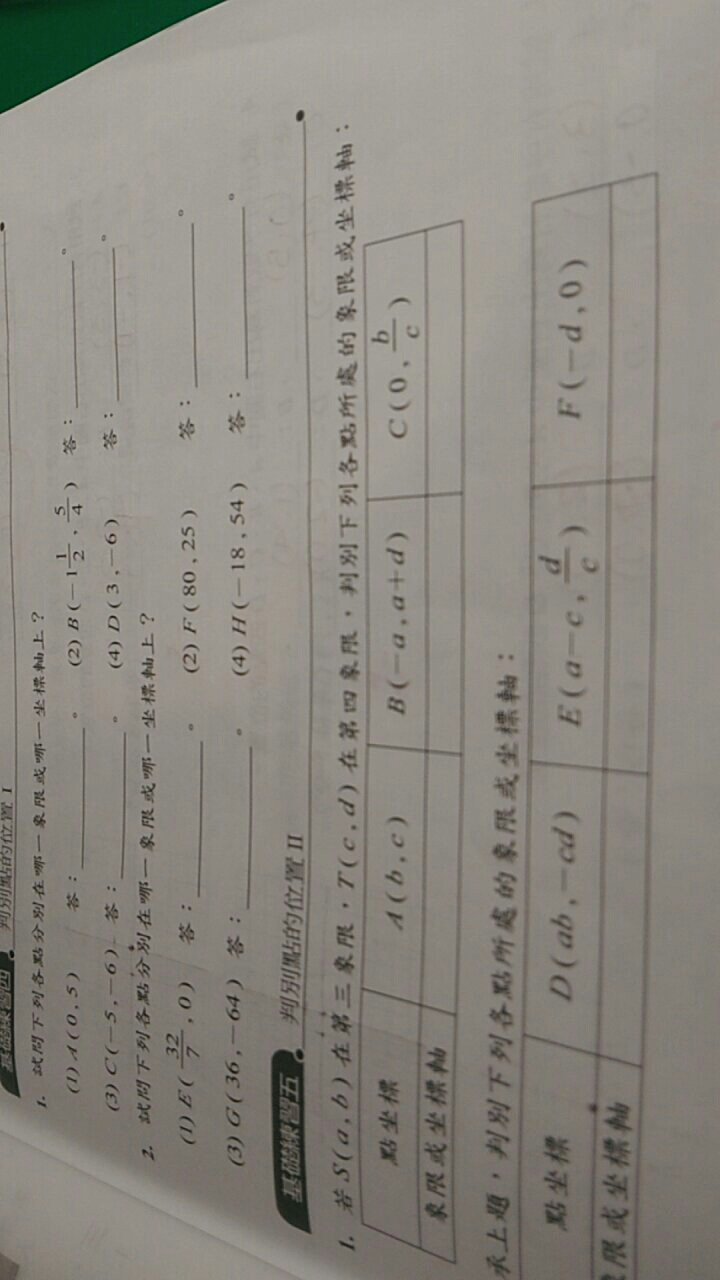 基礎練習四 判別點的位置 I
1. 試問下列各點分別在哪一象限或哪一坐標軸上？
(1) A(0,5) 答：________。 (2) B(-1 1/2, 5/4) 答：________。
(3) C(-5,-6) 答：________。 (4) D(3,-6) 答：________。
2. 試問下列各點分別在哪一象限或哪一坐標軸上？
(1) E(32/7, 0) 答：________。 (2) F(80,25) 答：________。
(3) G(36,-64) 答：________。 (4) H(-18,54) 答：________。
基礎練習五 判別點的位置 II
1. 若 S(a,b) 在第三象限，T(c,d) 在第四象限，判別下列各點所處的象限或坐標軸：
點坐標 A(b,c) B(-a,a+d) C(0, b/c)
象限或坐標軸
承上題，判別下列各點所處的象限或坐標軸：
點坐標 D(ab,-cd) E(a-c, d/c) F(-d,0)
限或坐標軸